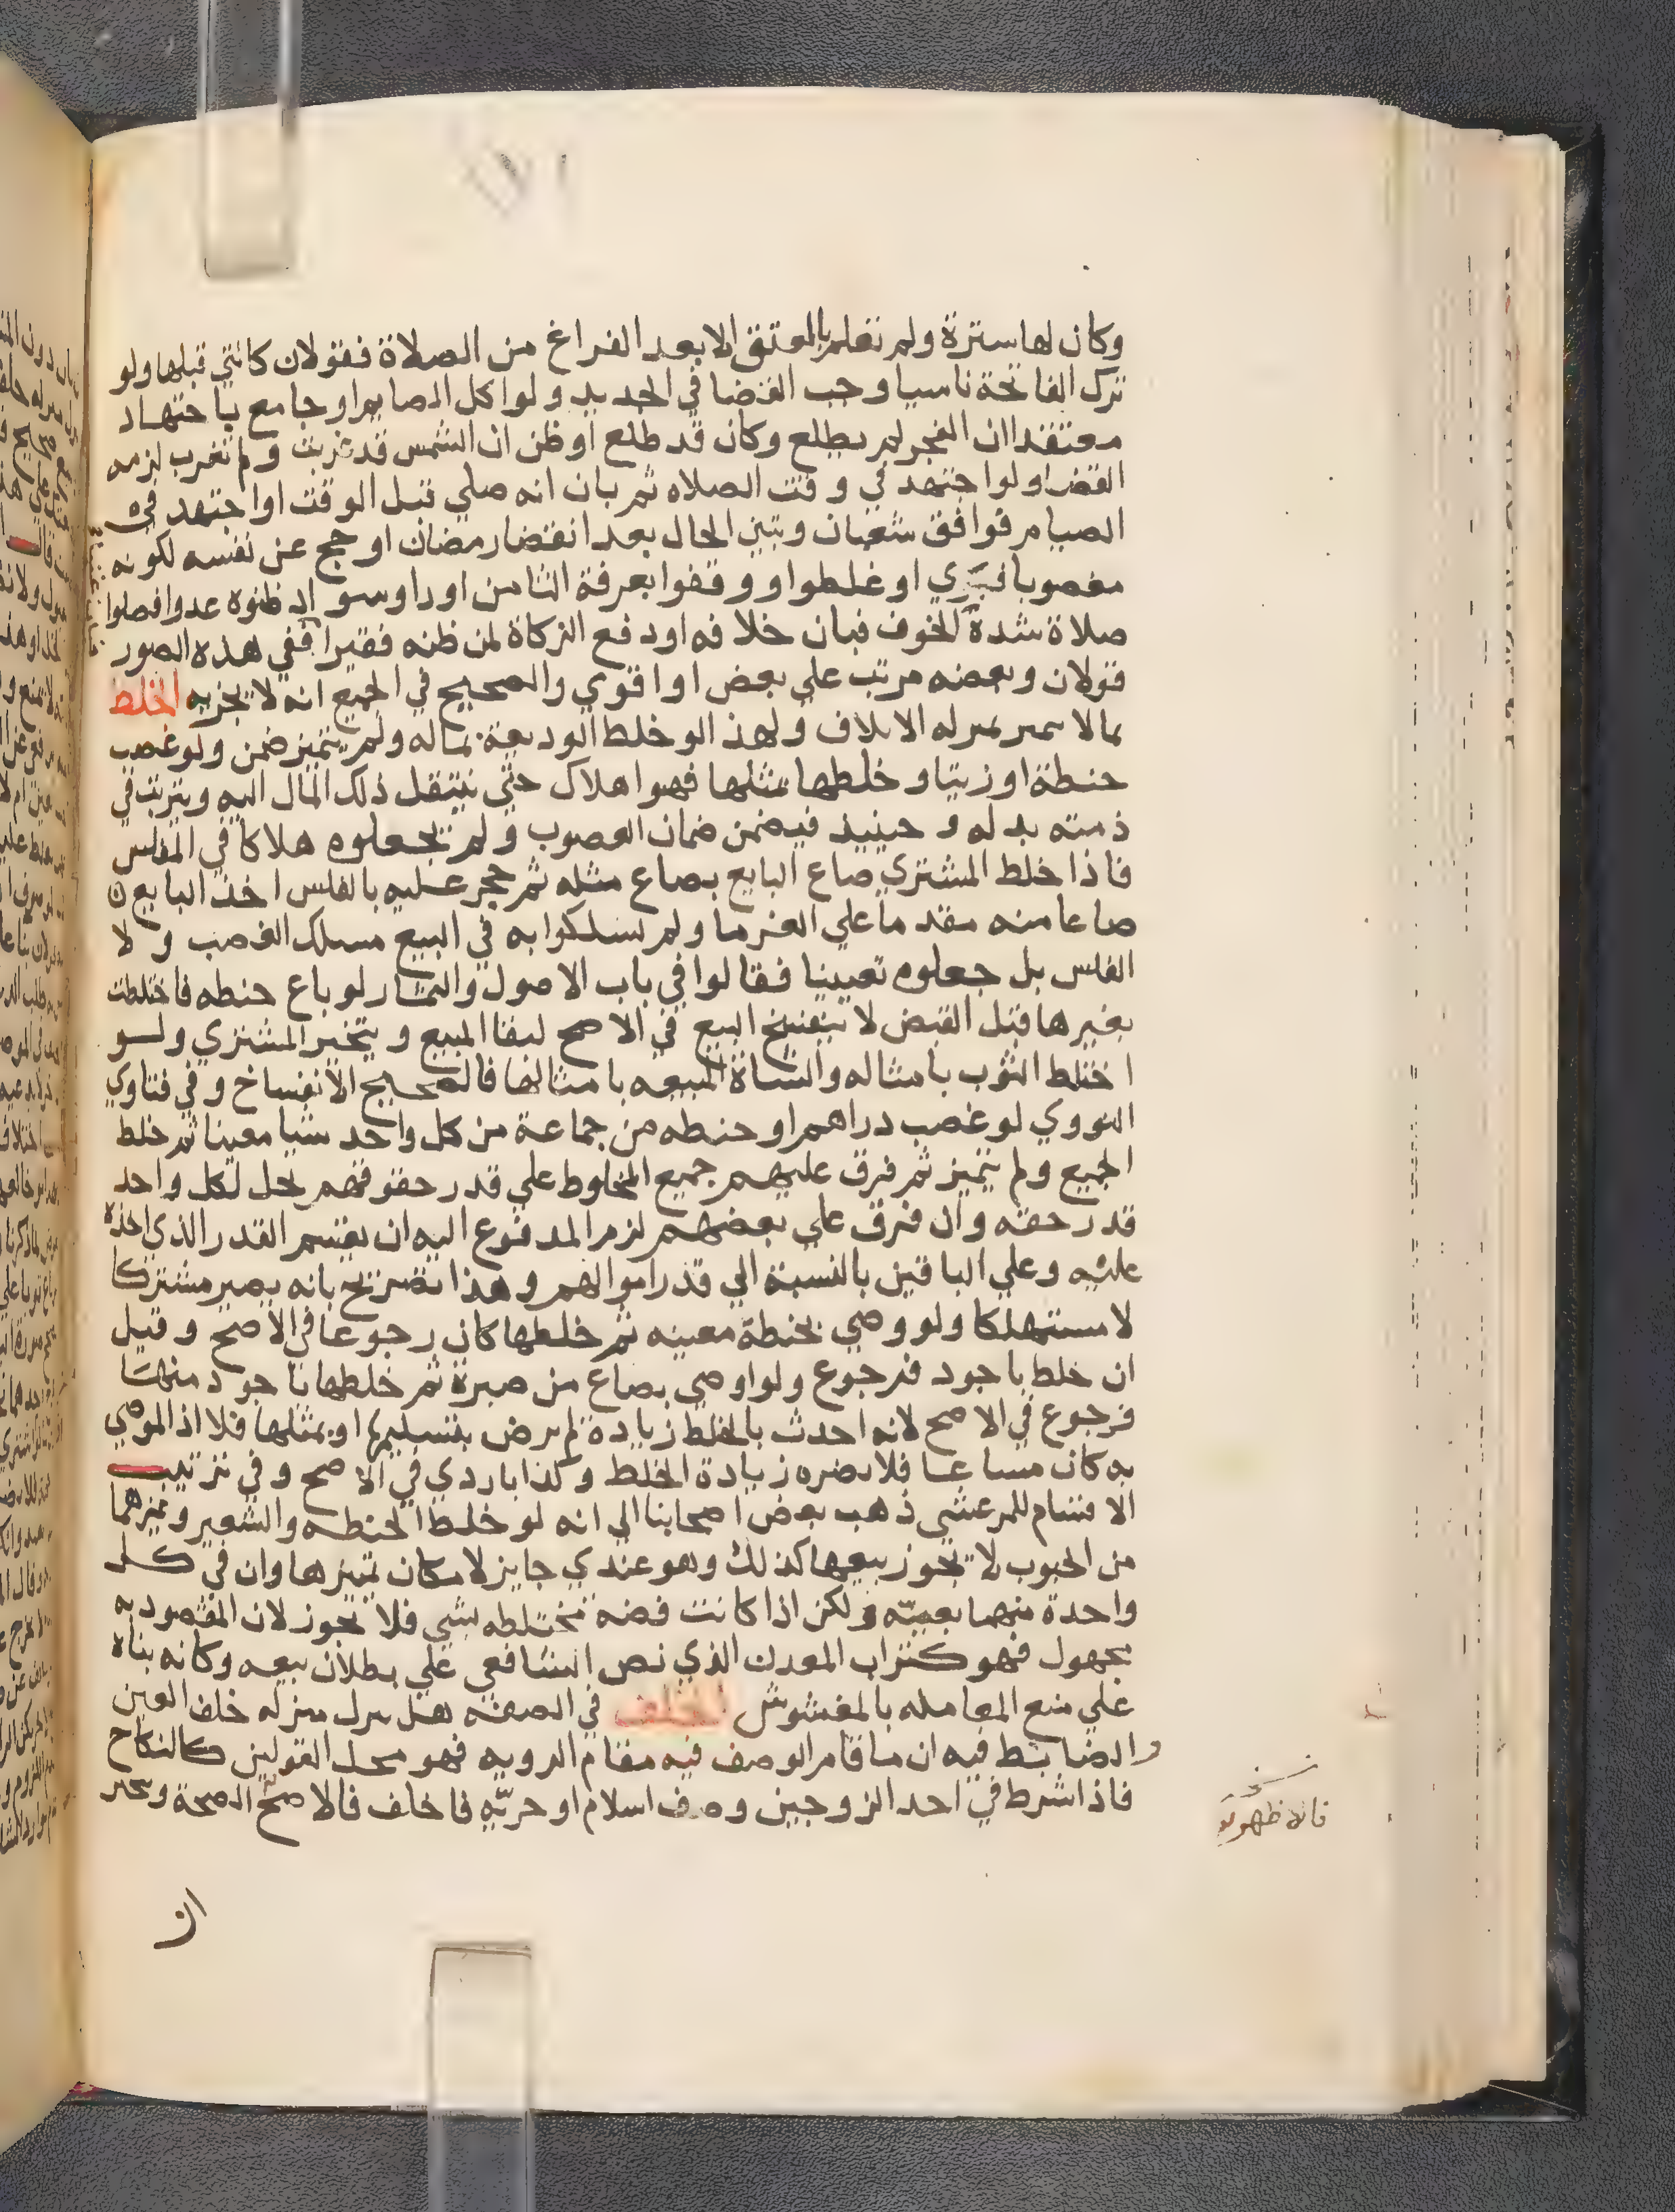 وكان لها سترة ولم تعلم بالعتق الا بعد الفراغ من الصلاة فقولان كالتي قبلها ولو
ترك الفاتحة ناسيا وجب القضا في الجديد ولو اكل الصايم او جامع باجتهاد
معتقدا ان الفجر لم يطلع وكان قد طلع او ظن ان الشمس قد غربت ولم تغرب لزمه
القضا ولو اجتهد في وقت الصلاه ثم بان انه صلي قبل الوقت او اجتهد في
الصيام فوافق شعبان وتبين الحال بعد انقضا رمضان او حج عن نفسه لكونه
مغصوبا فبري او غلطوا ووقفوا بعرفة الثامن او راوا سوادا ظنوه عدوا فصلوا
صلاة شدة الخوف فبان خلافه او دفع الزكاة لمن ظنه فقيرا ففي هذه الصور
قولان وبعضه مرتب علي بعض او اقوي والصحيح في الجميع انه لا يجزيه الخلط
بما لا يتميز بمنزلة الاتلاف ولهذا لو خلط الوديعة بماله ولم يتميز ضمن ولو غصب
حنطة او زيتا وخلطها بمثلها فهو اهلاك حتي ينتقل ذلك المال اليه ويترتب في
ذمته بدله وحينيذ فيضمن ضمان الغصوب ولم يجعلوه هلاكا في المفلس
فاذا خلط المشتري صاع البايع بصاع مثله ثم حجر عليه بالفلس اخذ البايع
صاعا منه مقدما علي الغرما ولم يسلكوا به في البيع مسلك الغصب ولا
الفلس بل جعلوه تعيينا فقالوا في باب الاصول والثمار لو باع حنطه فاختلطت
بغيرها قبل القبض لا ينفسخ البيع في الاصح لبقا المبيع ويتخير المشتري ولو
اختلط الثوب بامثاله والشاة المبيعه بامثالها فالصحيح الانفساخ وفي فتاوي
النووي لو غصب دراهم او حنطه من جماعة من كل واحد شيا معينا ثم خلط
الجميع ولم يتميز ثم فرق عليهم جميع المخلوط علي قدر حقوقهم يحل لكل واحد
قدر حقه وان فرق علي بعضهم لزم المدفوع اليه ان يقسم القدر الذي اخذه
عليه وعلي الباقين بالنسبة الي قدر اموالهم وهذا تصريح بانه يصير مشتركا
لا مستهلكا ولو وصي بحنطة معينه ثم خلطها كان رجوعا في الاصح وقيل
ان خلط باجود فرجوع ولو اوصي بصاع من صبرة ثم خلطها باجود منها
فرجوع في الاصح لانه احدث بالخلط زيادة لم يرض بتسليمها او بمثلها فلا اذ الموصي
به كان مساعا فلا يضره زيادة الخلط وكذا باردي في الاصح وفي ترتيب
الاقسام للمرعشي ذهب بعض اصحابنا الي انه لو خلط الحنطه والشعير وغيرهما
من الحبوب لا يجوز بيعها كذلك وهو عندي جايز لامكان تميزها وان في كل
واحدة منها بعينه ولكن اذا كانت فضه مختلطه بشي فلا يجوز لان المقصود به
مجهول فهو كتراب المعدن الذي نص الشافعي علي بطلان بيعه وكانه بناه
علي منع المعامله بالمغشوش الخلف في الصفه هل ينزل منزله خلف العين
والضابط فيه ان ما قام الوصف فيه مقام الرويه فهو محل القولين كالنكاح
فاذا شرط في احد الزوجين وصف اسلام او حريه فاخلف فالاصح الصحة
فالاظهر